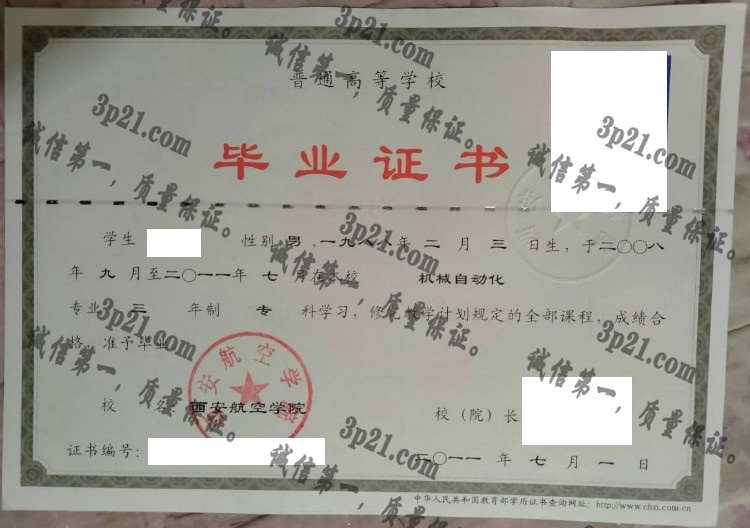 普通高等学校
毕业证书
学生 性别 男 ,一九八八年 二 月 三 日生，于二〇〇八
年 九 月至二〇一一年 七 月在本校 机械自动化
专业 三 年制 专 科学习，修完教学计划规定的全部课程，成绩合
格，准予毕业
校 名 西安航空学院 校（院）长
证书编号： 二〇一一 年 七 月 一 日
中华人民共和国教育部学历证书查询网址：http://www.chsi.com.cn
西安航空学院
3p21.com
诚信第一，质量保证。
3p21.com
诚信第一，质量保证。
3p21.com
诚信第一，质量保证。
3p21.com
诚信第一，质量保证。
3p21.com
诚信第一，质量保证。
3p21.com
诚信第一，质量保证。
3p21.com
诚信第一，质量保证。